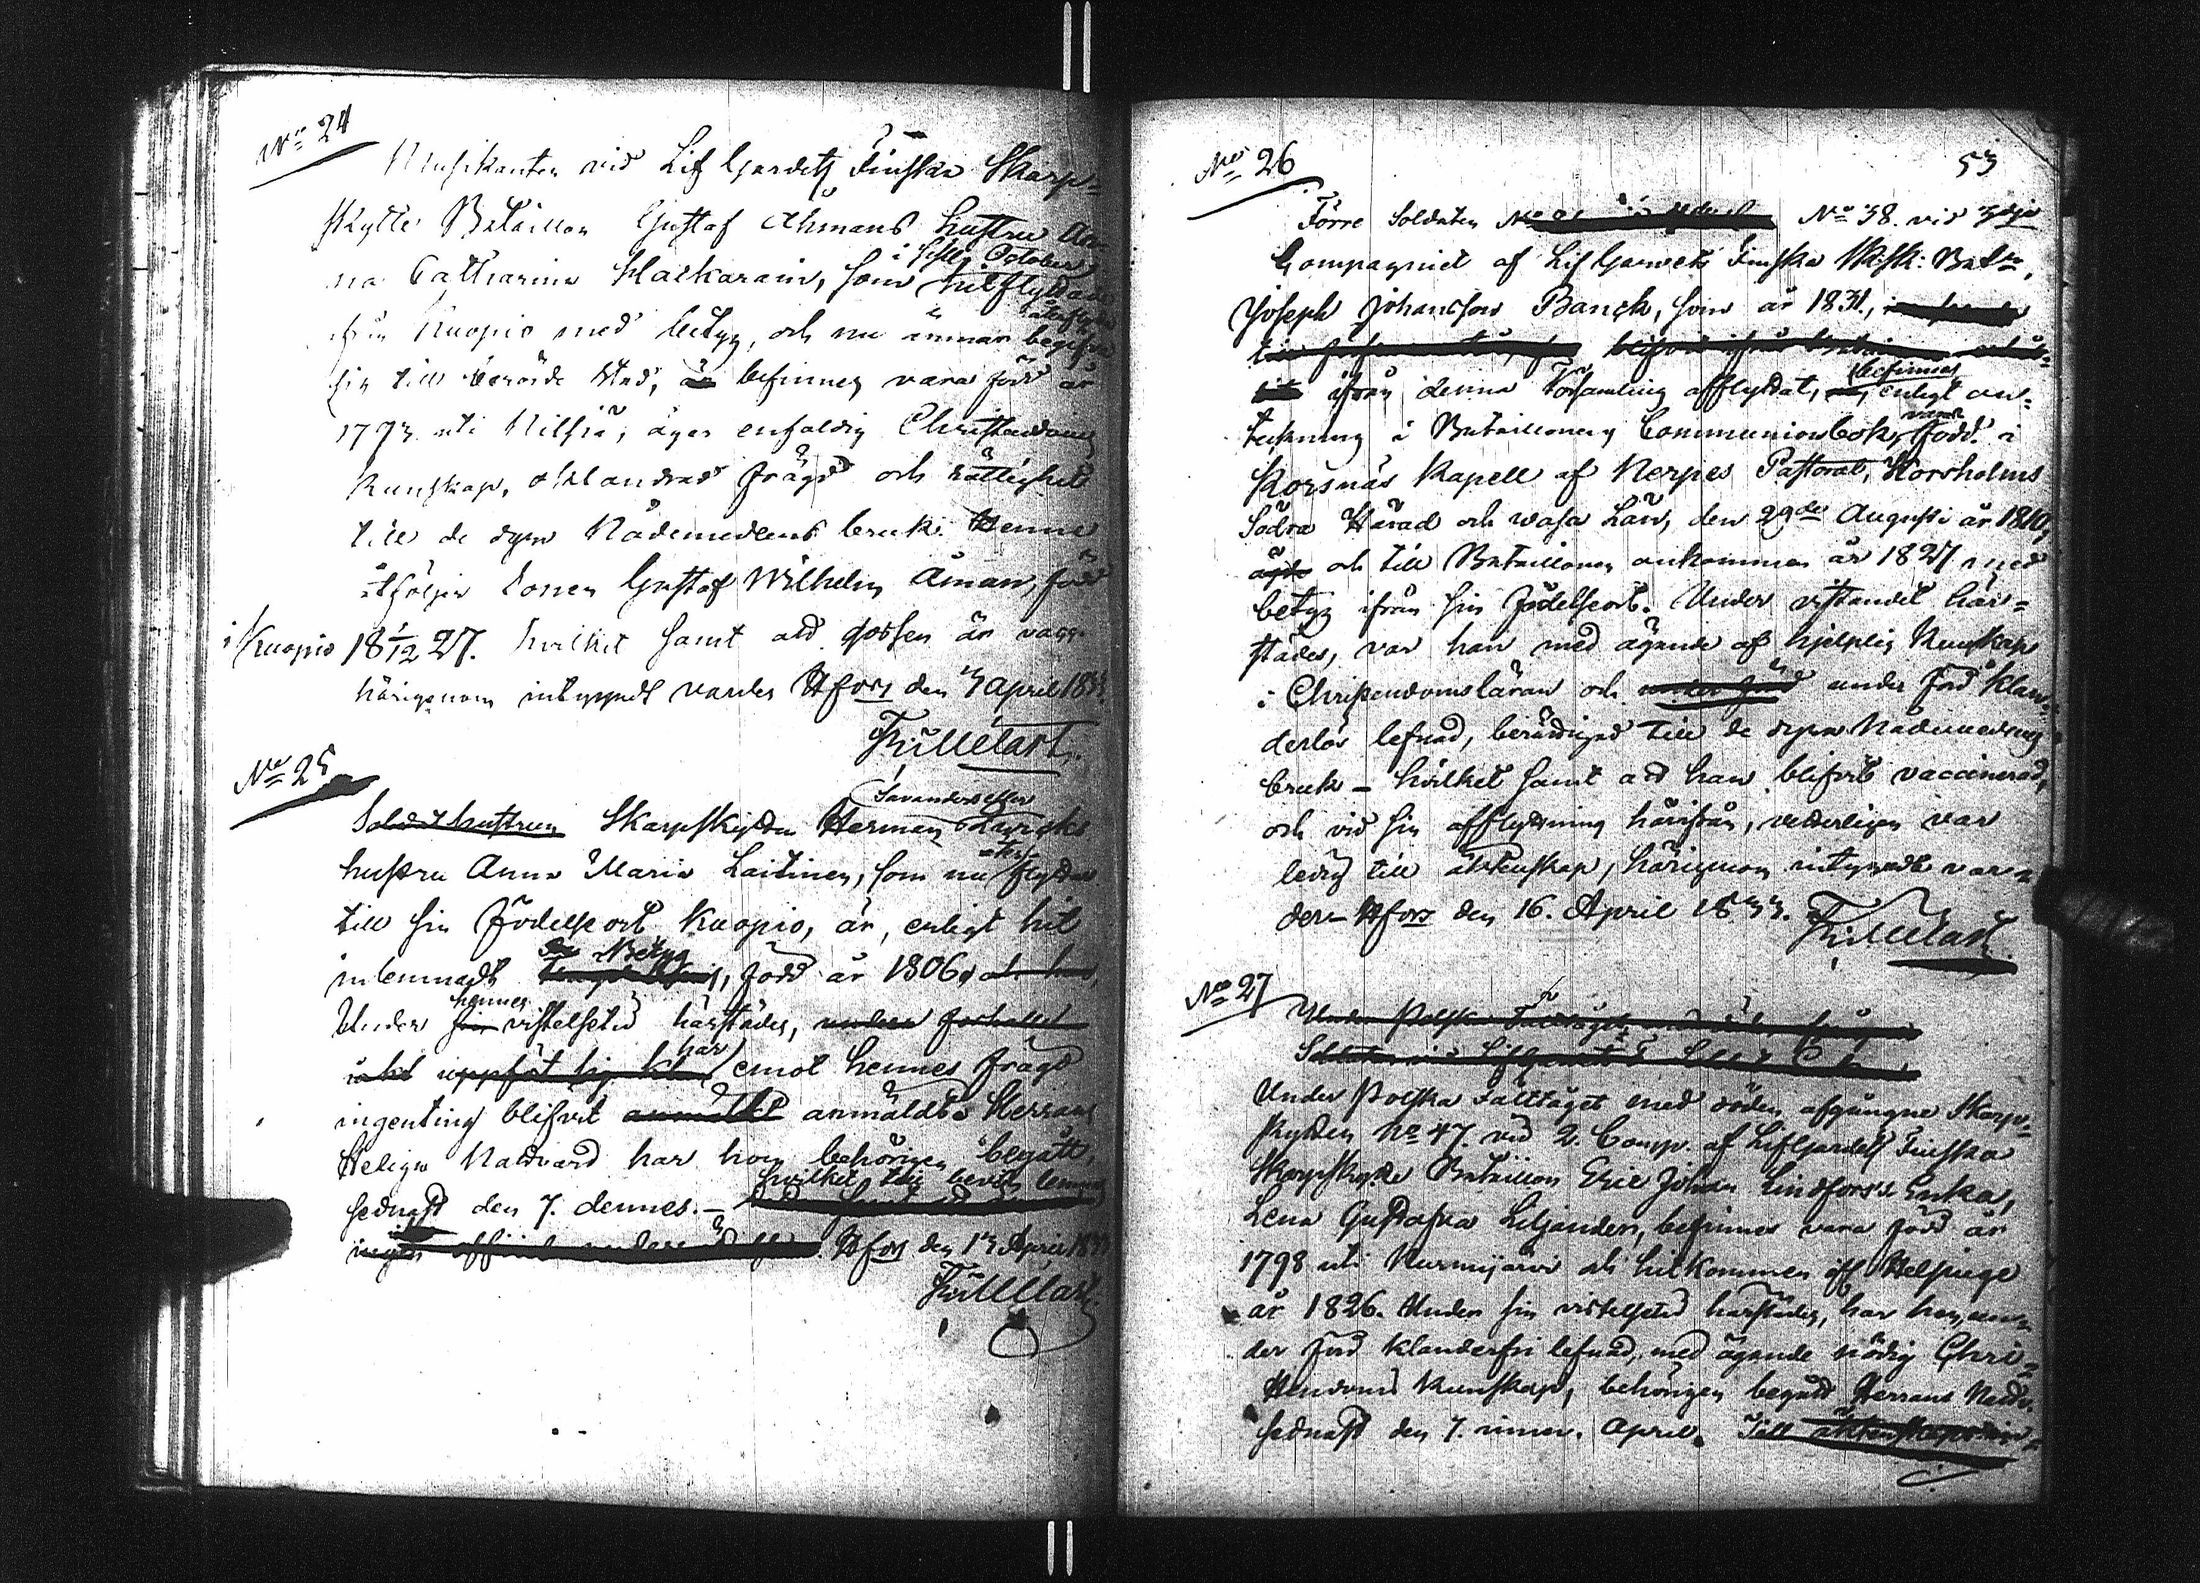 No 24
Musikanten vid Lif Gardets Finska Skarp=
skytte Bataillon Gustaf Åhmans hustru An
na Catharina Hackarain, som i sistl. October hitflyttade
från Kuopio med betyg, och nu ämnar
sig till berörde stad, befinnes vara född år
1793 uti Nilsiä, äger enfaldig Christendoms
kunskap, oklandrad frägd och rättighet
till de dyra Nådemedlens bruk. Henne
åtföljer Sonen Gustaf Wilhelm Åman, född
i Kuopio 18 1/12 27. hvilket samt att gossen är vacc.
härigenom intygadt varder Hfors den 3 April 1833.
No 25
Soldathustrun Skarpskytten Herman
Savander eller
hustru Anna Maria Laitinen, som nu åter flyttar
till sin födelseort Kuopio, är, enligt hit
inlemnadt Betyg, född år 1806,
Under hennes vistelsetid härstädes,
har emot hennes frägd
ingenting blifvit anmäldt. Herrans
Heliga Nattvard har hon behörigen begått,
sednast den 7. dennes. –
hvilket till bevis lemnas
Hfors den 13 April 1833
No 26
53
Förre Soldaten No 38. vid 3dje
Compagniet af Lif Gardets Finska Sk.sk. Batn,
Joseph Johansson Banck, som år 1831,
ifrån denna Församling afflyttat, befinnes enligt an=
teckning i Bataillonens Communionbok, vara född i
Korsnäs Kapell af Nerpes Pastorat, Korsholms
Södra Härad och Wasa Län, den 29de Augusti år 1810,
och till Bataillonen ankommen år 1827 med
betyg ifrån sin födelseort. Under vistandet här=
städes, var han med ägande af hjelplig Kunskap
i Christendomsläran och under förd klan=
derlös lefnad, berättigad till de dyra Nådemedlens
bruk – hvilket samt att han blifvit vaccinerad,
och vid sin afflyttning härifrån, vederligen var
ledig till äktenskap, härigenom intygadt var=
der – Hfors den 16. April 1833.
No 27
Under Polska Fälttåget med döden afgångne Skarp=
skytten No 47. vid 2. Comp. af LifGardets Finska
Skarpskytte Bataillon Eric Johan Lindfors's Enka,
Lena Gustafva Liljander, befinnes vara född år
1798 uti Nurmijärvi och hitkommen ifr. Helsinge
år 1826. Under sin vistelsetid härstädes, har hon, un=
der förd klanderfri lefnad, med ägande nödig Chri=
stendoms kunskap, behörigen begått Herrans Nattv.
sednast den 7. innev. April. Till